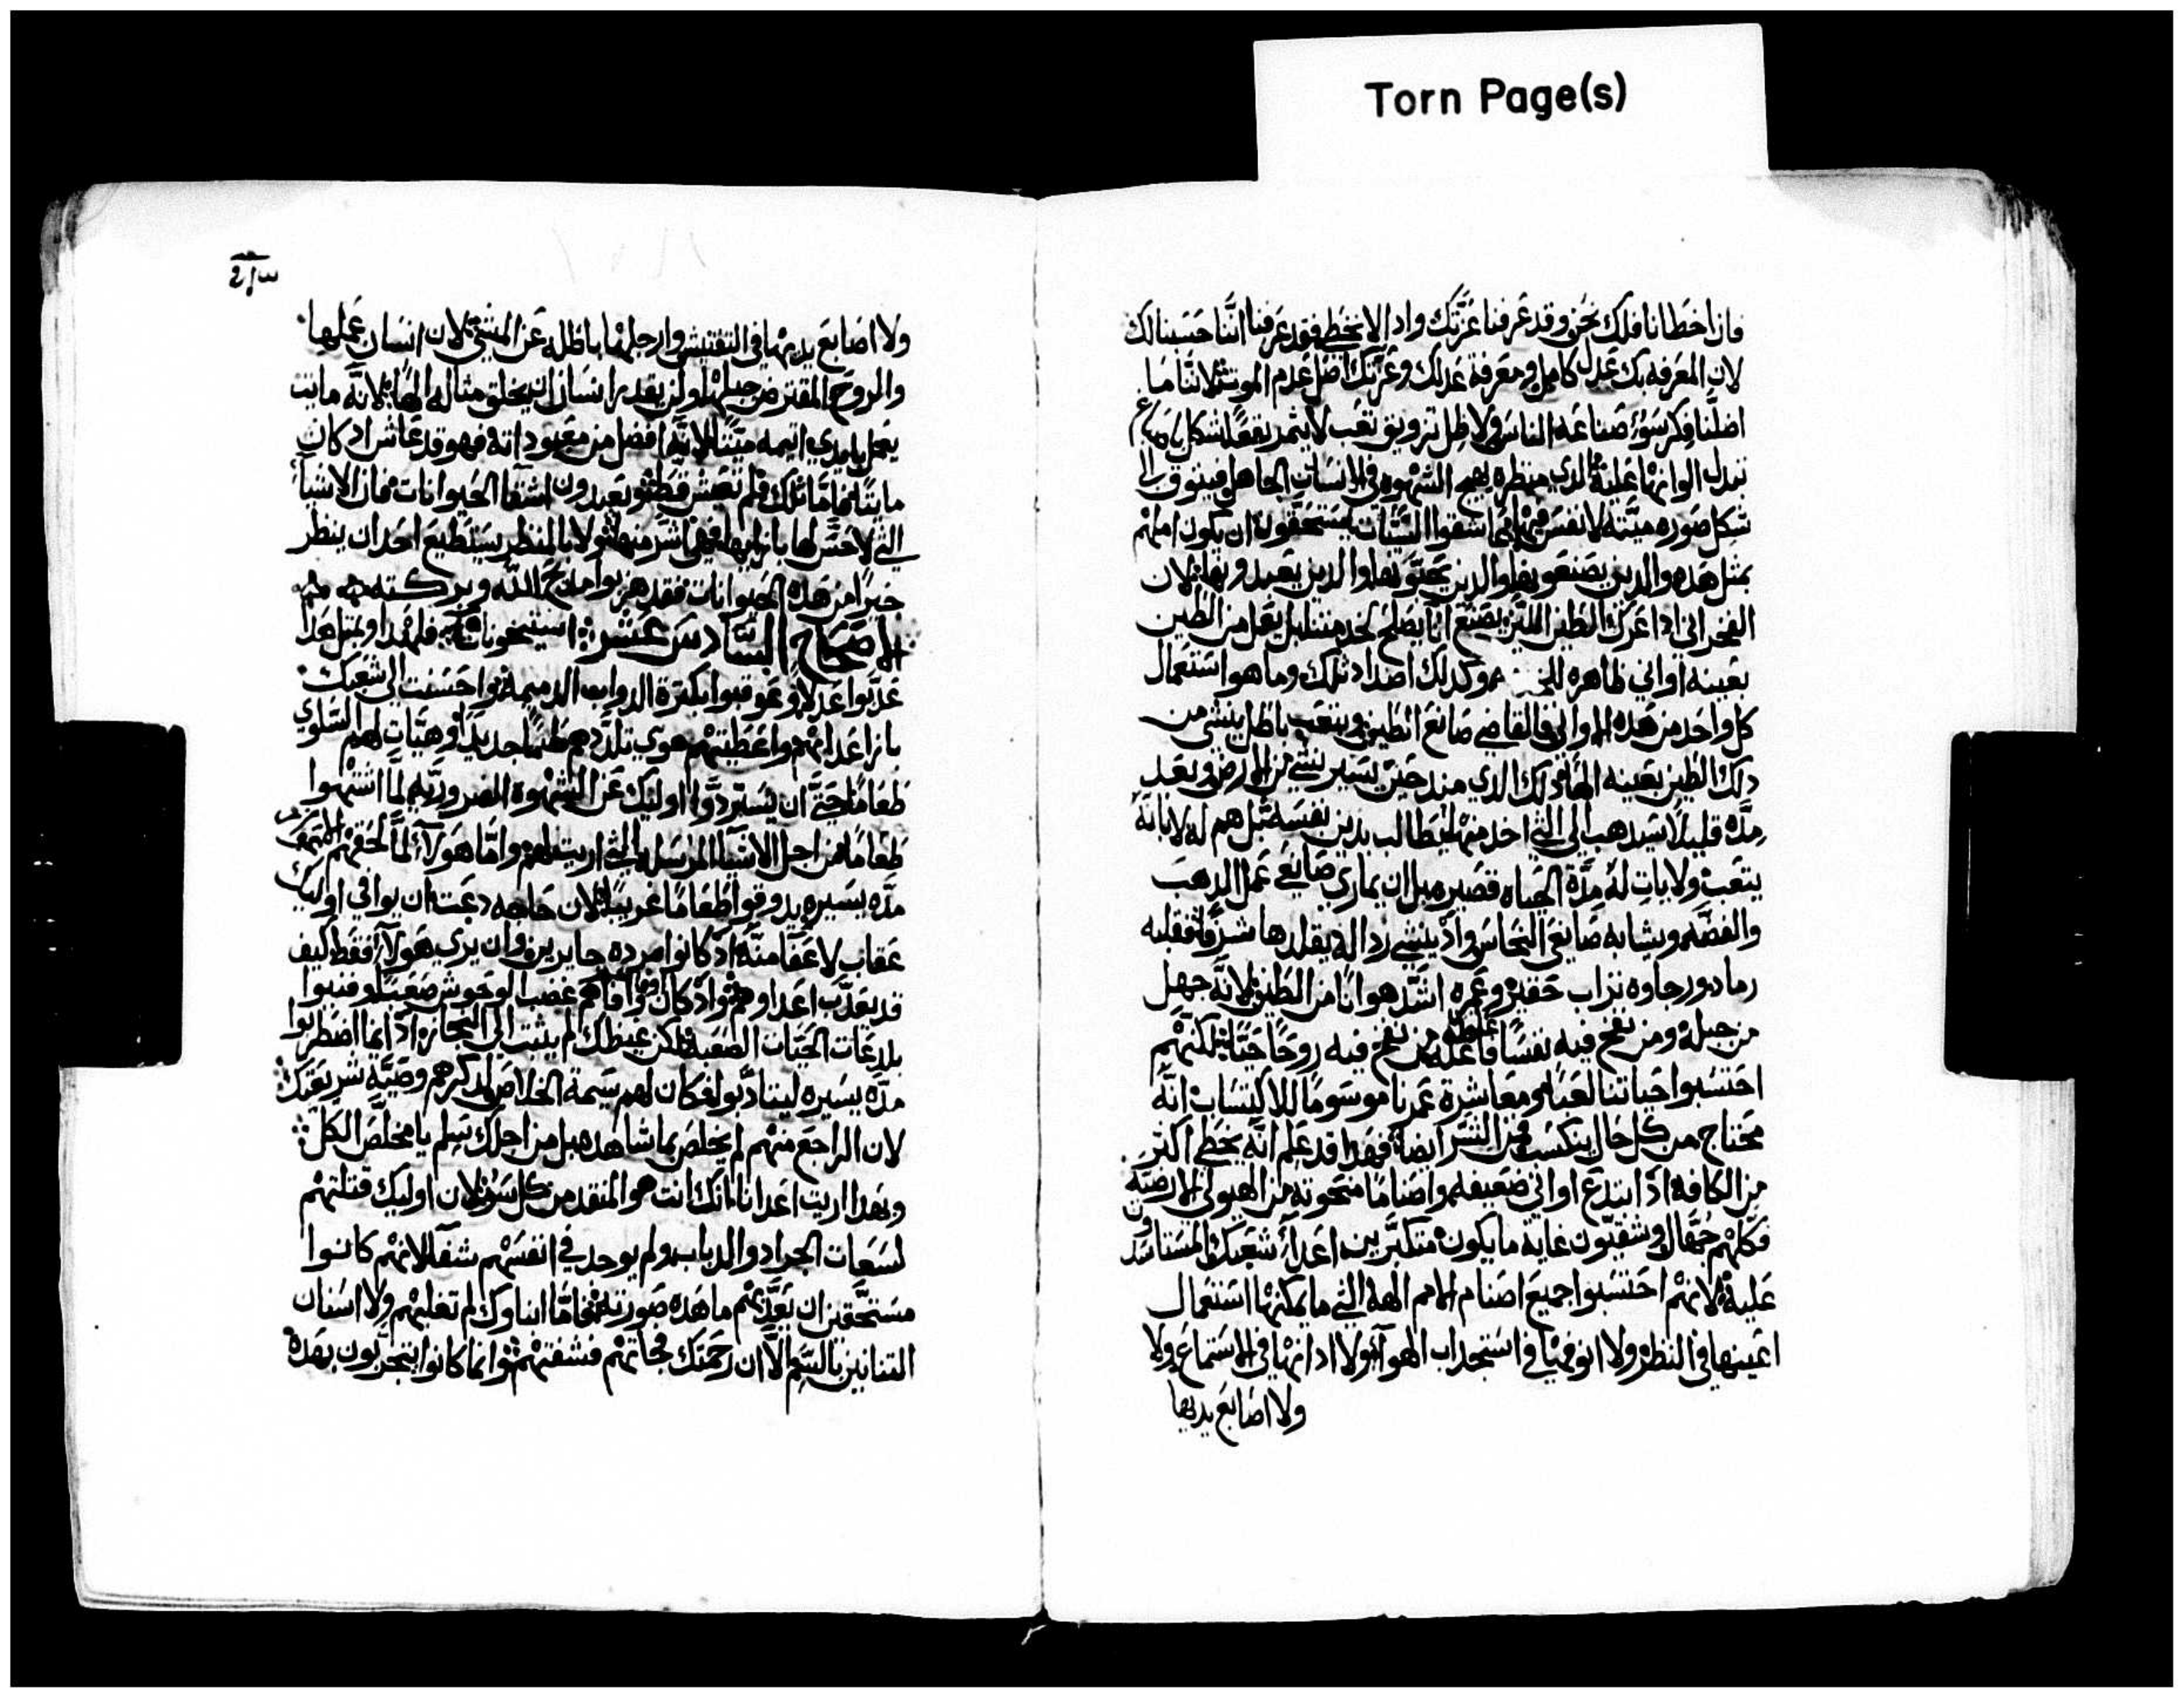 Torn Page(s)
فان اخطانا فلك نحن وقد عرفنا عزتك واد لا نخطي فقد عرفنا اننا حسبنا لك
لان المعرفه بك عدل كامل ومعرفة عدلك وعزتك اصل عدم الموت لاننا ما
اضلنا فكر سوء صناعة الناس ولا ظل تزويق تعب لا ثمر شكل
تبدل الوانها عليه الدي منظره يهيج الشهوه في الانسان الجاهل فيتوق الى
شكل صوره ميته لا نفس فيها اشقوا السيات يستحقون ان يكون املهم
بمثل هده والدين يصنعونها والدين يحبونها والدين يعبدونها لان
الفخراني ادا عرك الطين اللين يصنع انا يصلح لخدمتنا بل يعمل من الطين
بعينه اواني طاهره وكدلك اضداد تلك وما هو استعمال
كل واحد من هده الاواني فالقاضي صانع الطين ويتعب باطل ينشي من
دلك الطين بعينه الها دلك الدي مند حين يسير نشي من الارض وبعد
مده قليلا سيدهب الى التي اخد منها ليطالب بدين نفسه بل هم له لا بانه
يتعب ولا بان له مدة الحياه قصيره بل ان يماري صايغي عمل الدهب
والفضه ويشابه صايغي النحاس واد ينشي رداله يقلدها شرفا فقلبه
رماد ورجاوه تراب حقير وعمره اشد هوانا من الطين لانه جهل
من جبله ومن نفخ فيه نفسا فاعله ومن نفخ فيه روحا حيا لكنهم
احتسبوا حياتنا لعبا ومعاشرة عمرنا موسوما للاكتساب انه
محتاج من كل حال يتكسب من الشر ايضا فهدا قد علم انه يخطي اكتر
من الكافه اد ابتدع اواني ضعيفه واصناما منحوته من الهيولي الارضيه
فكلهم جهال وشقيون غاية ما يكون متكبرين اعداء شعبك المستاسدون
عليه لانهم احتسبوا جميع اصنام الامم الهة التي ما يمكنها استعمال
اعينها في النظر ولا انوفها في استجداب الهواء ولا ادانها في الاستماع ولا
ولا اصابع يديها
ولا اصابع يديها في التفتيش وارجلها باطله عن المشي لان انسان عملها
والروح المقترض جبلها ولن يقدر انسان ان يخلق مثاله الها لانه مايت
يعمل بايدي اتيمه ميتا لانه افضل من معبوداته فهو قد عاش اد كان
مايتا فاما تلك فلم تعش قط ويعبدون اشقا الحيوانات فان الاشيا
التي لا حس لها بازايها فهي اشر منها ولا بالمنظر يستطيع احد ان ينظر
خيرا من هده الحيوانات فقد هربوا مدح الله وبركته منهم
الاصحاح السادس عشر: فلهدا وبمثل هدا
عدبوا عدلا وعوقبوا بكترة الدواب الدميمه واحسنت الى شعبك
بازا عدابهم واعطيتهم هوي تلددهم طعما جديدا وهيات لهم السلوي
طعاما حتى ان يستردوا اوليك عن الشهوه الضروريه لما اشتهوا
طعاما من اجل الاشيا المرسله التي اريت لهم واما هولاء لما لحقهم
مده يسيره يدوقوا طعاما غريبا لان حاجه دعت ان يوافي اوليك
عقاب لا عفا منه اد كانوا مرده جايرين وان يري هولاء فقط كيف
قد يعدب اعداوهم واد كان وافاهم غضب الوحوش صعبا وفنيوا
بلدغات الحيات الصعبه لكن غيظك لم يثبت الى النجاز اد انما اضطربوا
مده يسيره ليتادبوا وكان لهم سيمة الخلاص لدكرهم وصية شريعتك
لان الراجع منهم لم يخلص بما شاهده بل من اجلك سلم يا مخلص الكل
وبهدا اريت اعدانا انك انت هو المنقد من كل سوء لان اوليك قتلتهم
لسعات الجراد والدباب ولم يوجد في انفسهم شفا لانهم كانوا
مستحقين ان يعدبهم ما هده صورته فاما ابناوك لم تغلبهم ولا اسنان
التنانين بالسم الا ان رحمتك جاتهم فشفتهم وانما كانوا يتجربون بهده